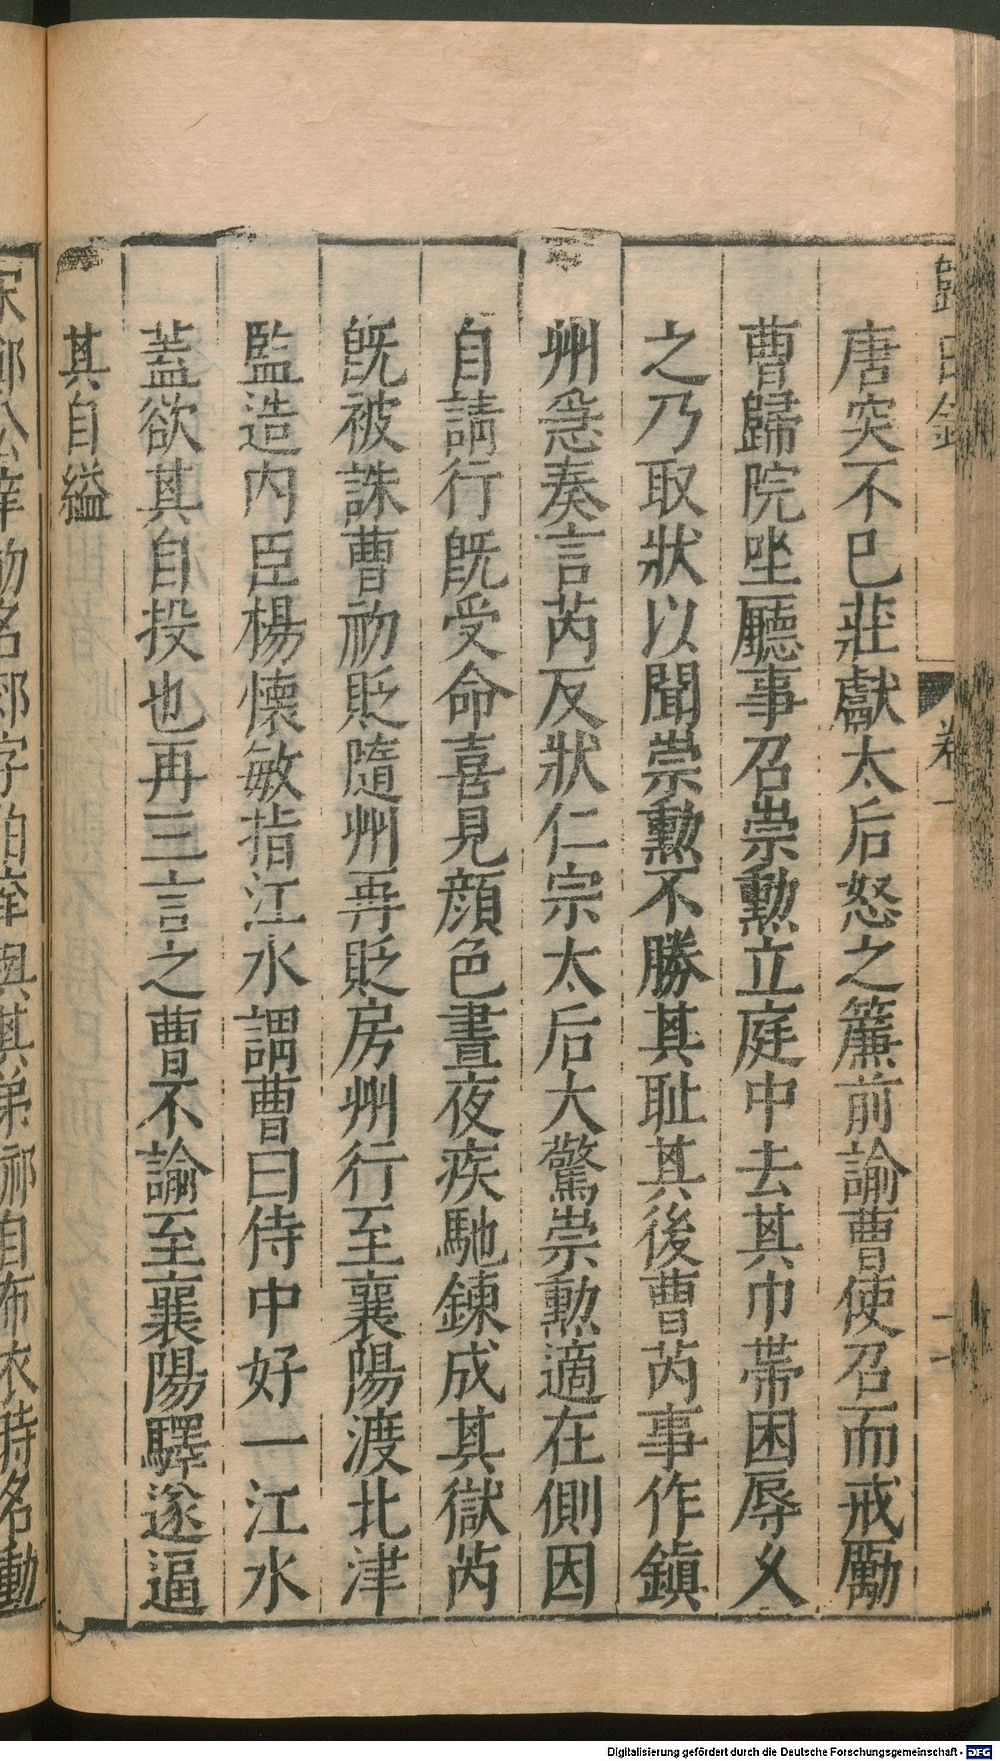 歸田錄 卷一
唐突不已莊獻太后怒之簾前諭曹使召而戒勵
曹歸院坐廳事召崇勳立庭中去其巾帶困辱乆
之乃取狀以聞崇勳不勝其耻其後曹芮事作鎮
州急奏言芮反狀仁宗太后大驚崇勳適在側因
自請行旣受命喜見顔色晝夜疾馳鍊成其獄芮
旣被誅曹初貶隨州再貶房州行至襄陽渡北津
監造内臣楊懷敏指江水謂曹曰侍中好一江水
蓋欲其自投也再三言之曹不諭至襄陽驛遂逼
其自縊
宋郊公庠初名郊字伯庠與其弟祁自布衣時名動
Digitalisierung gefördert durch die Deutsche Forschungsgemeinschaft - DFG